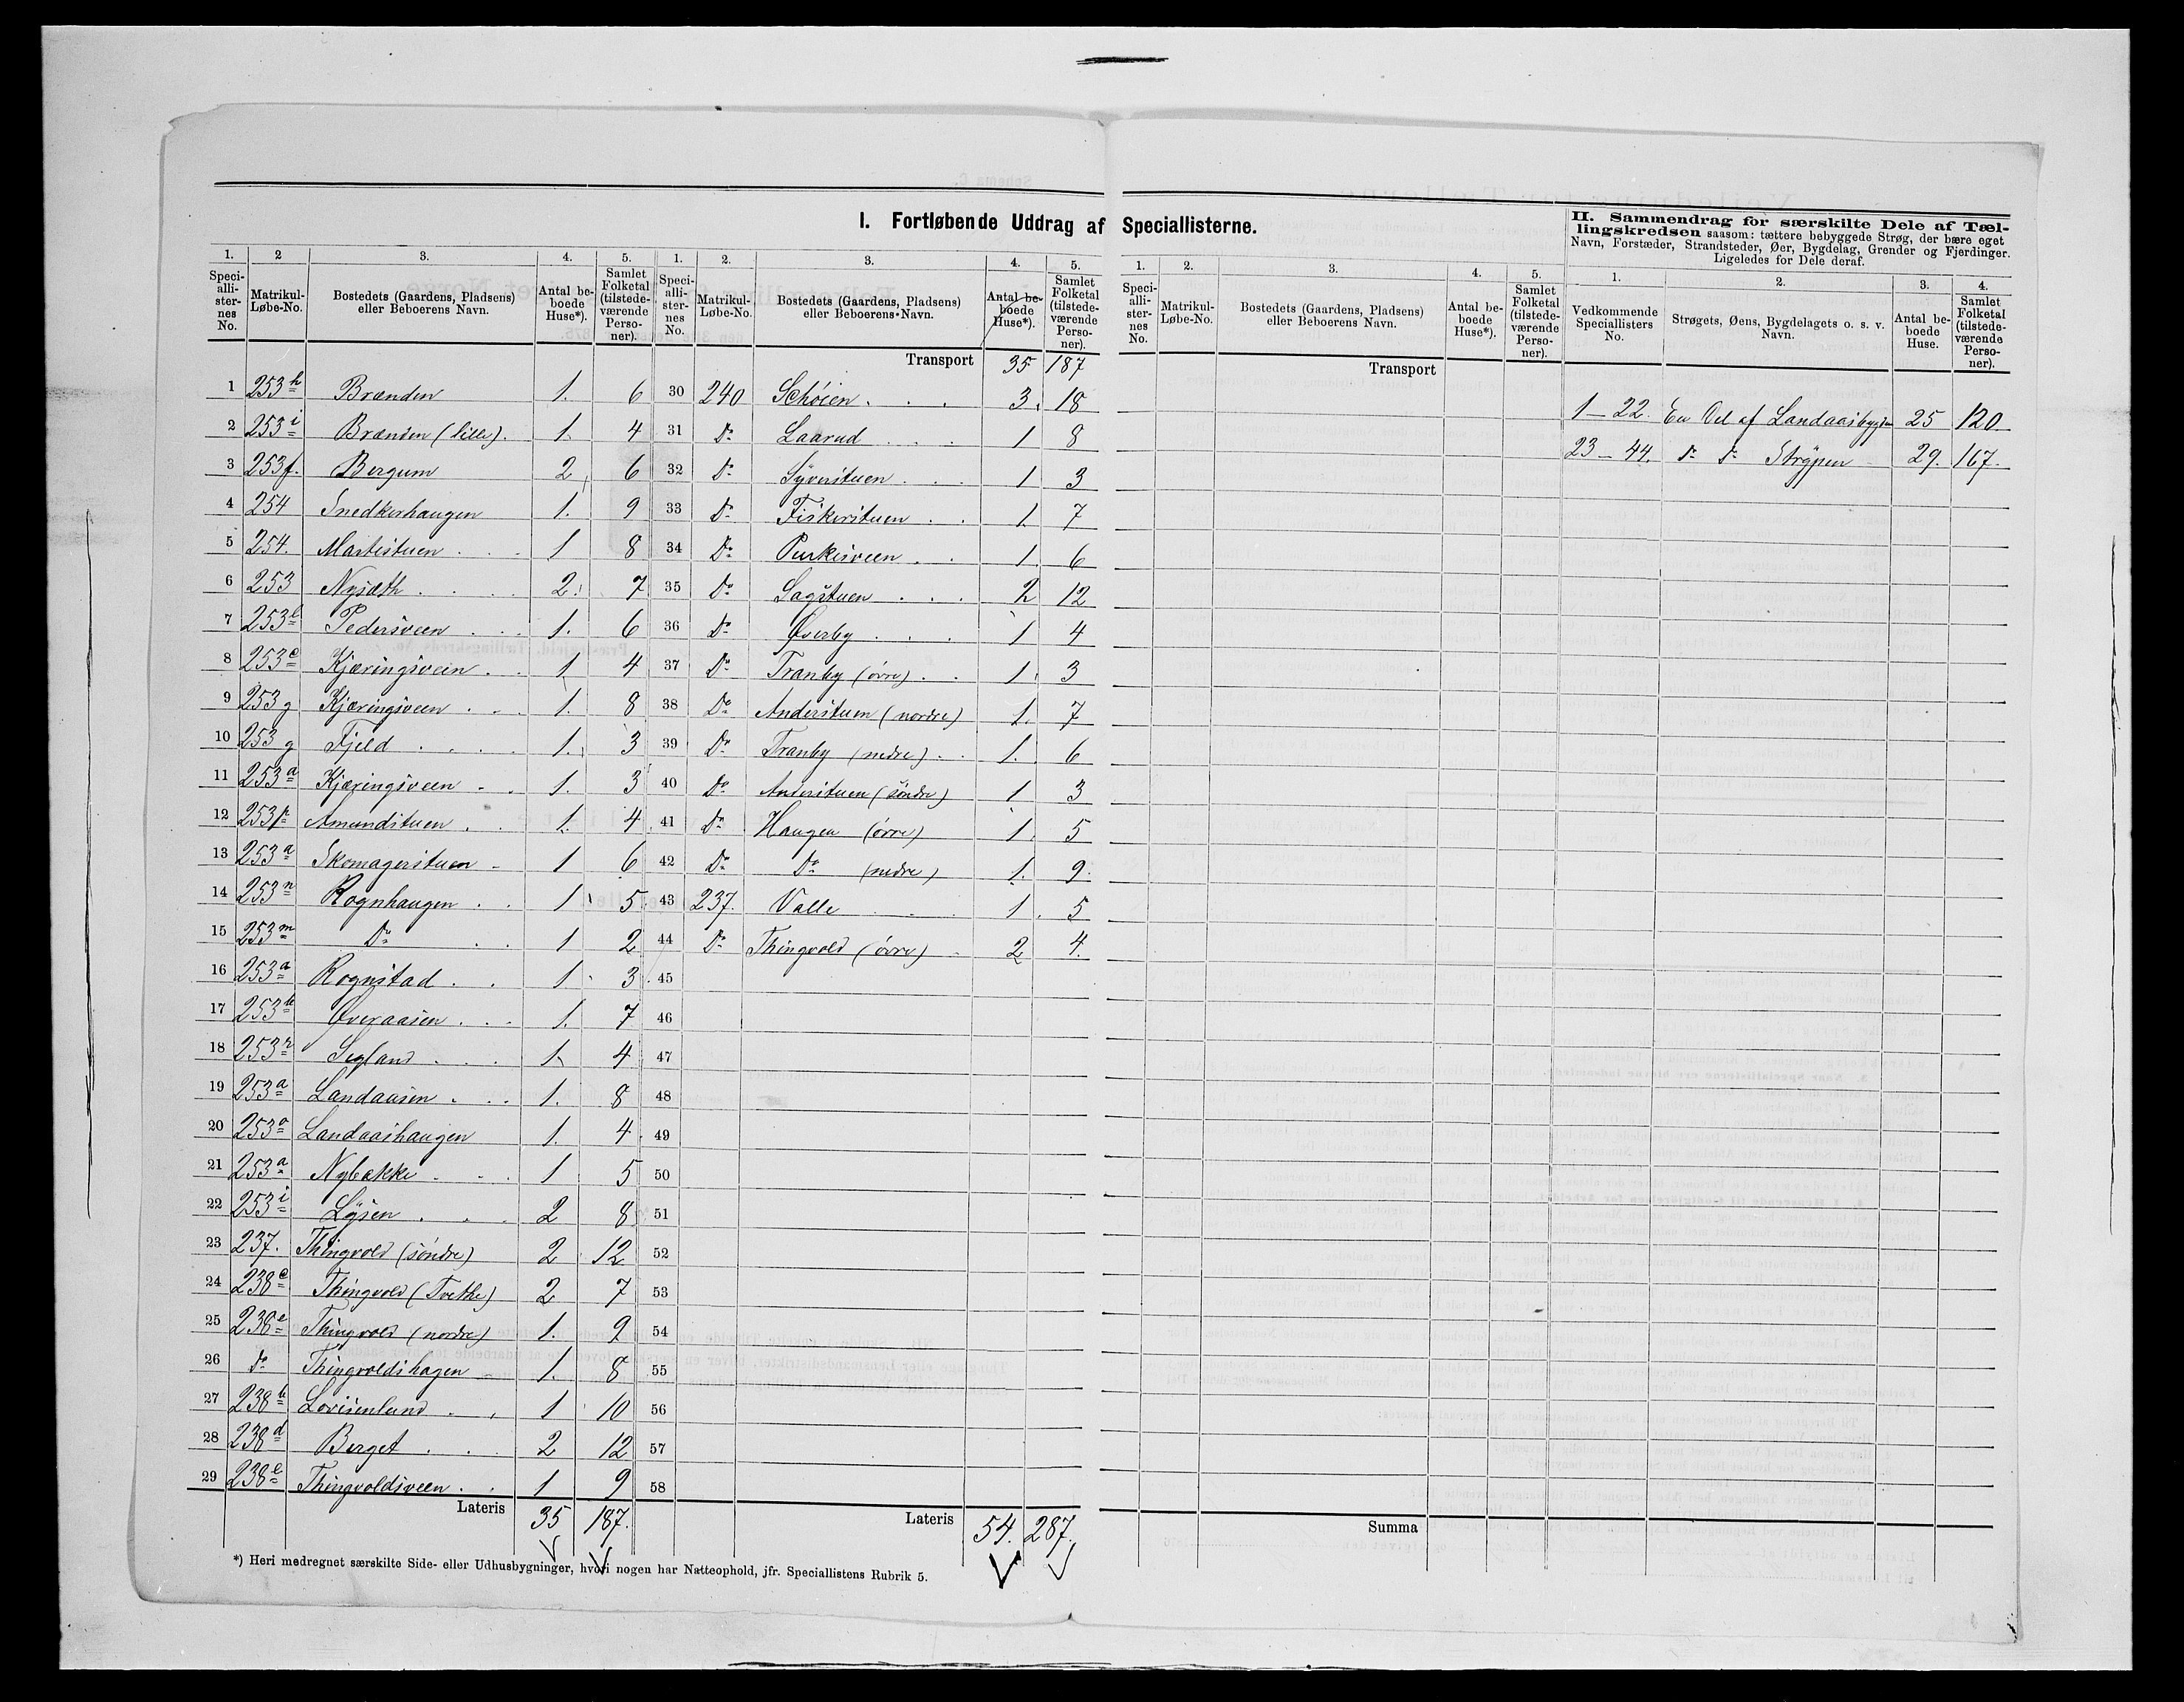 I. Fortløbende Uddrag af Speciallisterne.
1. 2 3. 4. 5.
Speciallisternes No. Matrikul-Løbe-No. Bostedets (Gaardens, Pladsens) eller Beboerens Navn. Antal beboede Huse*). Samlet Folketal (tilstedeværende Personer).
1 253h Brænden 1. 6
2 253i Brænden (lille). 1. 4
3 253f. Bergum 2 6
4 254 Snedkerhaugen 1. 9
5 254. Martistuen 1 8
6 253 Nysæth 2. 7
7 253l Pedersveen 1. 6
8 253e Kjæringsvein 1 4
9 253g Kjæringsveen 1. 8
10 253g Fjeld 1. 3
11 253a Kjæringsveen 1. 3
12 253p Amundstuen 1. 4
13 253a Skomagerstuen 1 6
14 253n Rognhaugen 1 5
15 253m Do 1 2
16 253a Rognstad 1 3
17 253k Overaasen 1. 7
18 253r Segland 1 4
19 253a Landaasen 1. 8
20 253o Landaashaugen 1. 4
21 253a Nybakke 1 5
22 253i Lysen 2 8
23 237. Thingvold (søndre) 2 12
24 238c Thingvold (Tvethe) 2 7
25 238e Thingvold (nordre) 1. 9
26 do Thingvoldshagen 1. 8
27 238b Lovisenlund 1 10
28 238d Berget 2 12
29 238e Thingvoldsveen 1 9
Lateris 35 187.
1. 2. 3. 4. 5.
Speciallisternes No. Matrikul-Løbe-No. Bostedets (Gaardens, Pladsens) eller Beboerens Navn. Antal beboede Huse*). Samlet Folketal (tilstedeværende Personer).
Transport 35 187
30 240 Schøien 3. 18
31 Do Laarud 1 8
32 Do Syverstuen 1 3
33 Do Fiskerstuen 1. 7
34 Do Purkesveen 1. 6
35 Do Sagstuen 2 12
36 Do Øverby 1 4
37 Do Tranby (øvre) 1 3
38 Do Anderstuen (nordre) 1. 7
39 Do Tranby (nedre) 1. 6
40 Do Anderstuen (søndre) 1 3
41 Do Haugen (øvre) 1 5
42 Do Do (nedre) 1. 9
43 237. Valle 1. 5
44 Do Thingvold (øvre) 2 4.
45
46
47
48
49
50
51
52
53
54
55
56
57
58
Lateris 54. 287.
*) Heri medregnet særskilte Side- eller Udhusbygninger, hvori nogen har Natteophold, jfr. Speciallistens Rubrik 5.
1. 2. 3. 4. 5.
Speciallisternes No. Matrikul-Løbe-No. Bostedets (Gaardens, Pladsens) eller Beboerens Navn. Antal beboede Huse*). Samlet Folketal (tilstedeværende Personer).
Transport
Summa
II. Sammendrag for særskilte Dele af Tællingskredsen saasom: tættere bebyggede Strøg, der bære eget
Navn, Forstæder, Strandsteder, Øer, Bygdelag, Grender og Fjerdinger.
Ligeledes for Dele deraf.
1. 2. 3. 4.
Vedkommende Speciallisters No. Strøgets, Øens, Bygdelagets o. s. v. Navn. Antal beboede Huse. Samlet Folketal (tilstedeværende Personer).
1 - 22. En Del af Landaasbygden 25 120
23 - 44. do do Strypen 29. 167.